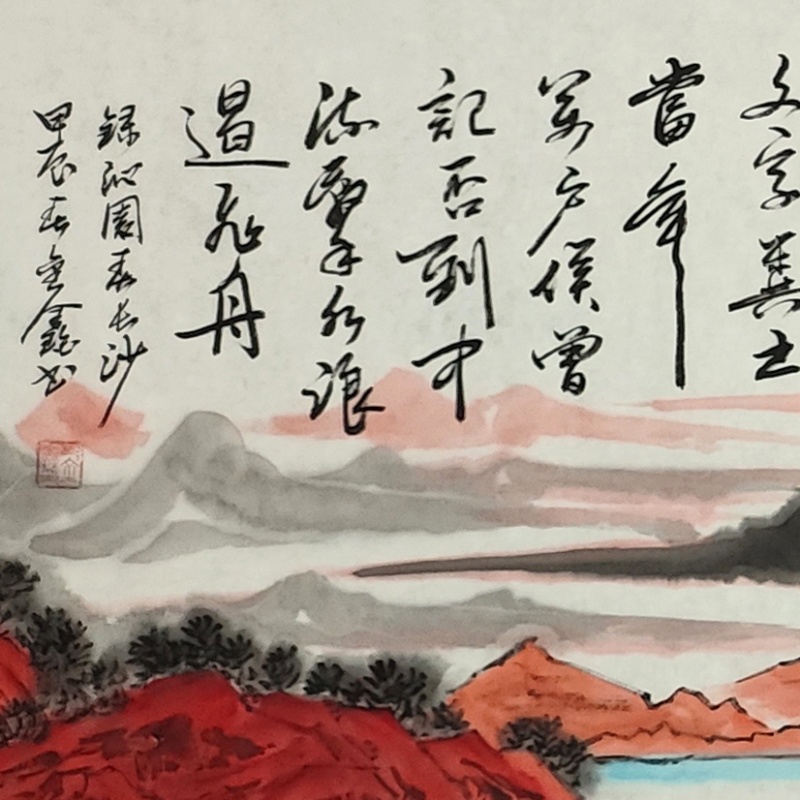 文字糞土
當年
萬戶侯曾
記否到中
流擊水浪
遏飛舟
錄沁園春長沙
甲辰春金鑫书